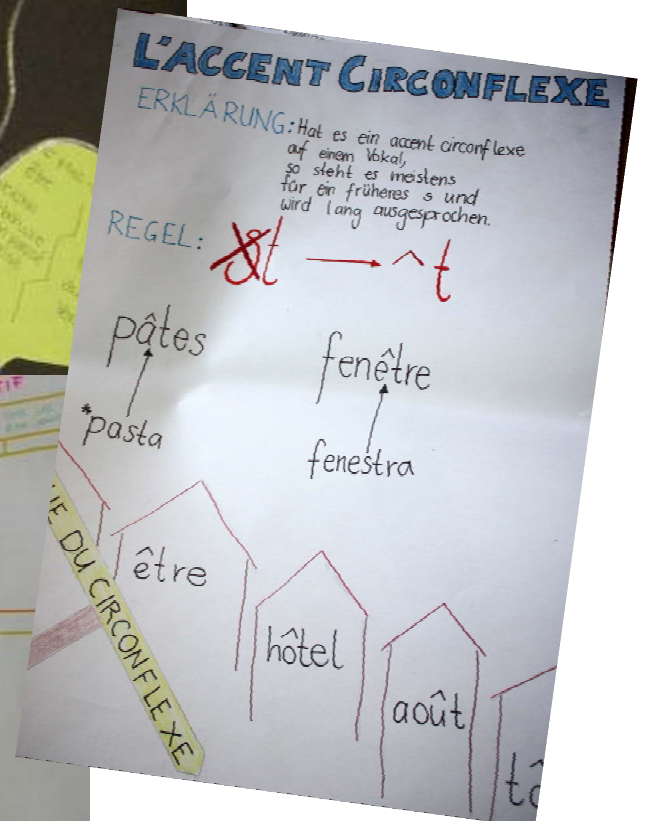 L'ACCENT CIRCONFLEXE
ERKLÄRUNG: Hat es ein accent circonflexe
auf einem Vokal,
so steht es meistens
für ein früheres s und
wird lang ausgesprochen.
REGEL: st → ^t
pâtes
fenêtre
*pasta
fenestra
DU CIRCONFLEXE
être
hôtel
août